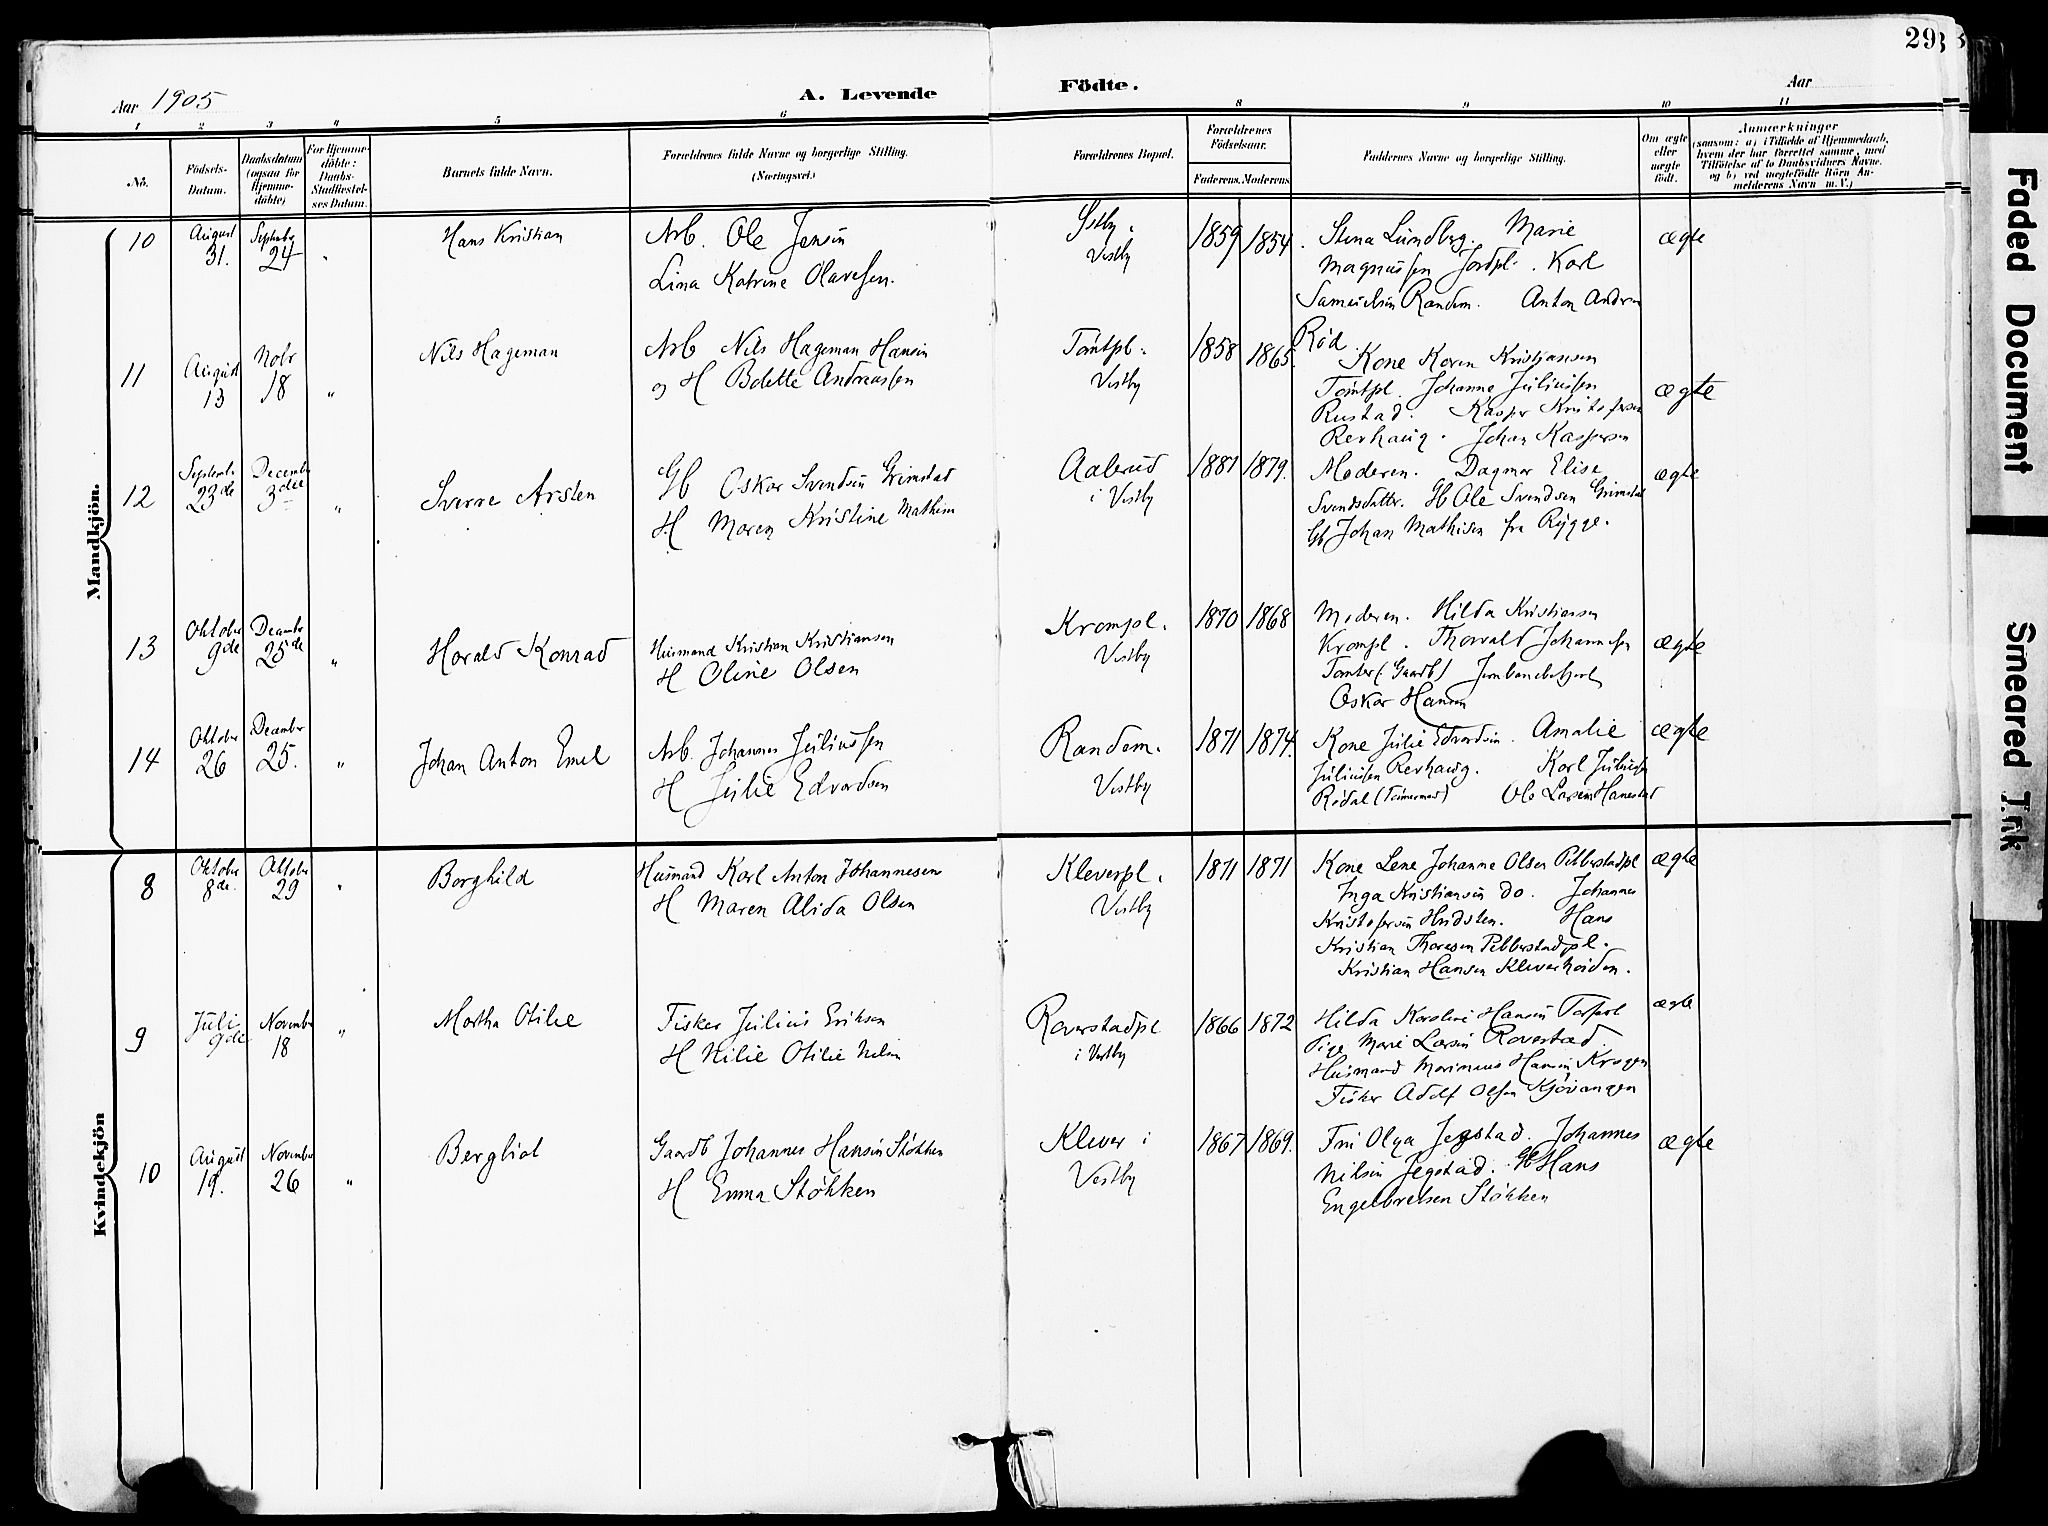 29
Aar 1905
A. Levende Födte.
Aar
1 2 3 4 5 6 8 9 10 11
No.
Födsels-Datum.
Daabsdatum (ogsaa for Hjemme-döbte)
For Hjemme-döbte: Daabs-Stadfæstel-ses Datum.
Barnets fulde Navn.
Forældrenes fulde Navne og borgerlige Stilling. (Næringsvei.)
Forældrenes Bopæl.
Forældrenes Födselsaar.
Faderens. Moderens
Faddernes Navne og borgerlige Stilling.
Om ægte eller uægte födt.
Anmærkninger
(saasom: a) i Tilfælde af Hjemmedaab, hvem der har forrettet samme, med Tilföielse af to Daabsvidners Navne. og b) ved uægtefödte Börn An-melderens Navn m. V.)
Mandkjön.
10 August 31. Septembr 24 " Hans Kristian
Arb. Ole Jensen
Lina Katrine Olavesen.
Vestby 1859 1854.
Stena Lundberg. Marie
Magnussen Jordpl. Karl
Samuelsen Randem. Anton Andrea
Röd.
ægte
11 August 13 Nobr 18 " Nils Hageman
Arb Nils Hageman Hansen
og H Bolette Andreassen
Tomtpl. Vestby 1858 1865.
Kone Karen Kristiansen
Tomtpl. Johanne Juliussen
Rustad. Kasper Kristofersen
Revhaug. Johan Kaspersen
ægte
12 Septembr 23de December 3die " Sverre Arsten
Gb Oskar Svendsen Grimstad
H Maren Kristine Mathisen
Aalerud i Vestby 1881 1879.
Moderen. Dagmar Elise
Svendsdatter. Gb Ole Svendsen Grimstad
Gb Johan Mathisen fra Rygge.
ægte
13 Oktober 9de Decembr 25de " Harald Konrad
Husmand Kristian Kristiansen
H Oline Olsen
Krompl. Vestby 1870 1868
Moderen. Hilda Kristiansen
Krompl. Thorvald Johannessen
Tomter (Gaardb)
Oskar Hansen
ægte
14 Oktober 26 December 25. " Johan Anton Emil
Arb. Johannes Juliussen
H Julie Edvardsen
Randem. Vestby 1871 1874.
Kone Julie Edvardsen. Amalie
Juliussen Revhaug. Karl Juliussen
Rödal (Tömermad) Ole Larsen Hanestad
ægte
Kvindekjön
8 Oktober 8de. Oktober 29 " Borghild
Husmand Karl Anton Johannesen
H Maren Alida Olsen
Kleverpl. Vestby 1871 1871
Kone Lene Johanne Olsen Pebberstadpl
Inga Kristiansen do. Johannes
Kristofersen Hvidsten. Hans
Kristian Thoresen Pebberstadpl.
Kristian Hansen Kleverheiden.
ægte
9 Juli 9de November 18 " Martha Otilie
Fisker Julius Eriksen
H Nilie Otilie Nilsen
Raverstadpl i Vestby 1866 1872
Hilda Karoline Hansen
Pige Marie Larsen Raverstad.
Husmand Marinius Hansen Krogen
Fisker Adolf Olsen Kjövangen
ægte
10 August 19. November 26 " Bergliot
Gaardb Johannes Hansen Stökken
H Emma Stökken
Klever i Vestby 1867 1869.
Fru Olga Jegstad. Johannes
Nilsen Jegstad. Gb Hans
Engelbretsen Stökken
ægte
Faded Document
Smeared Ink